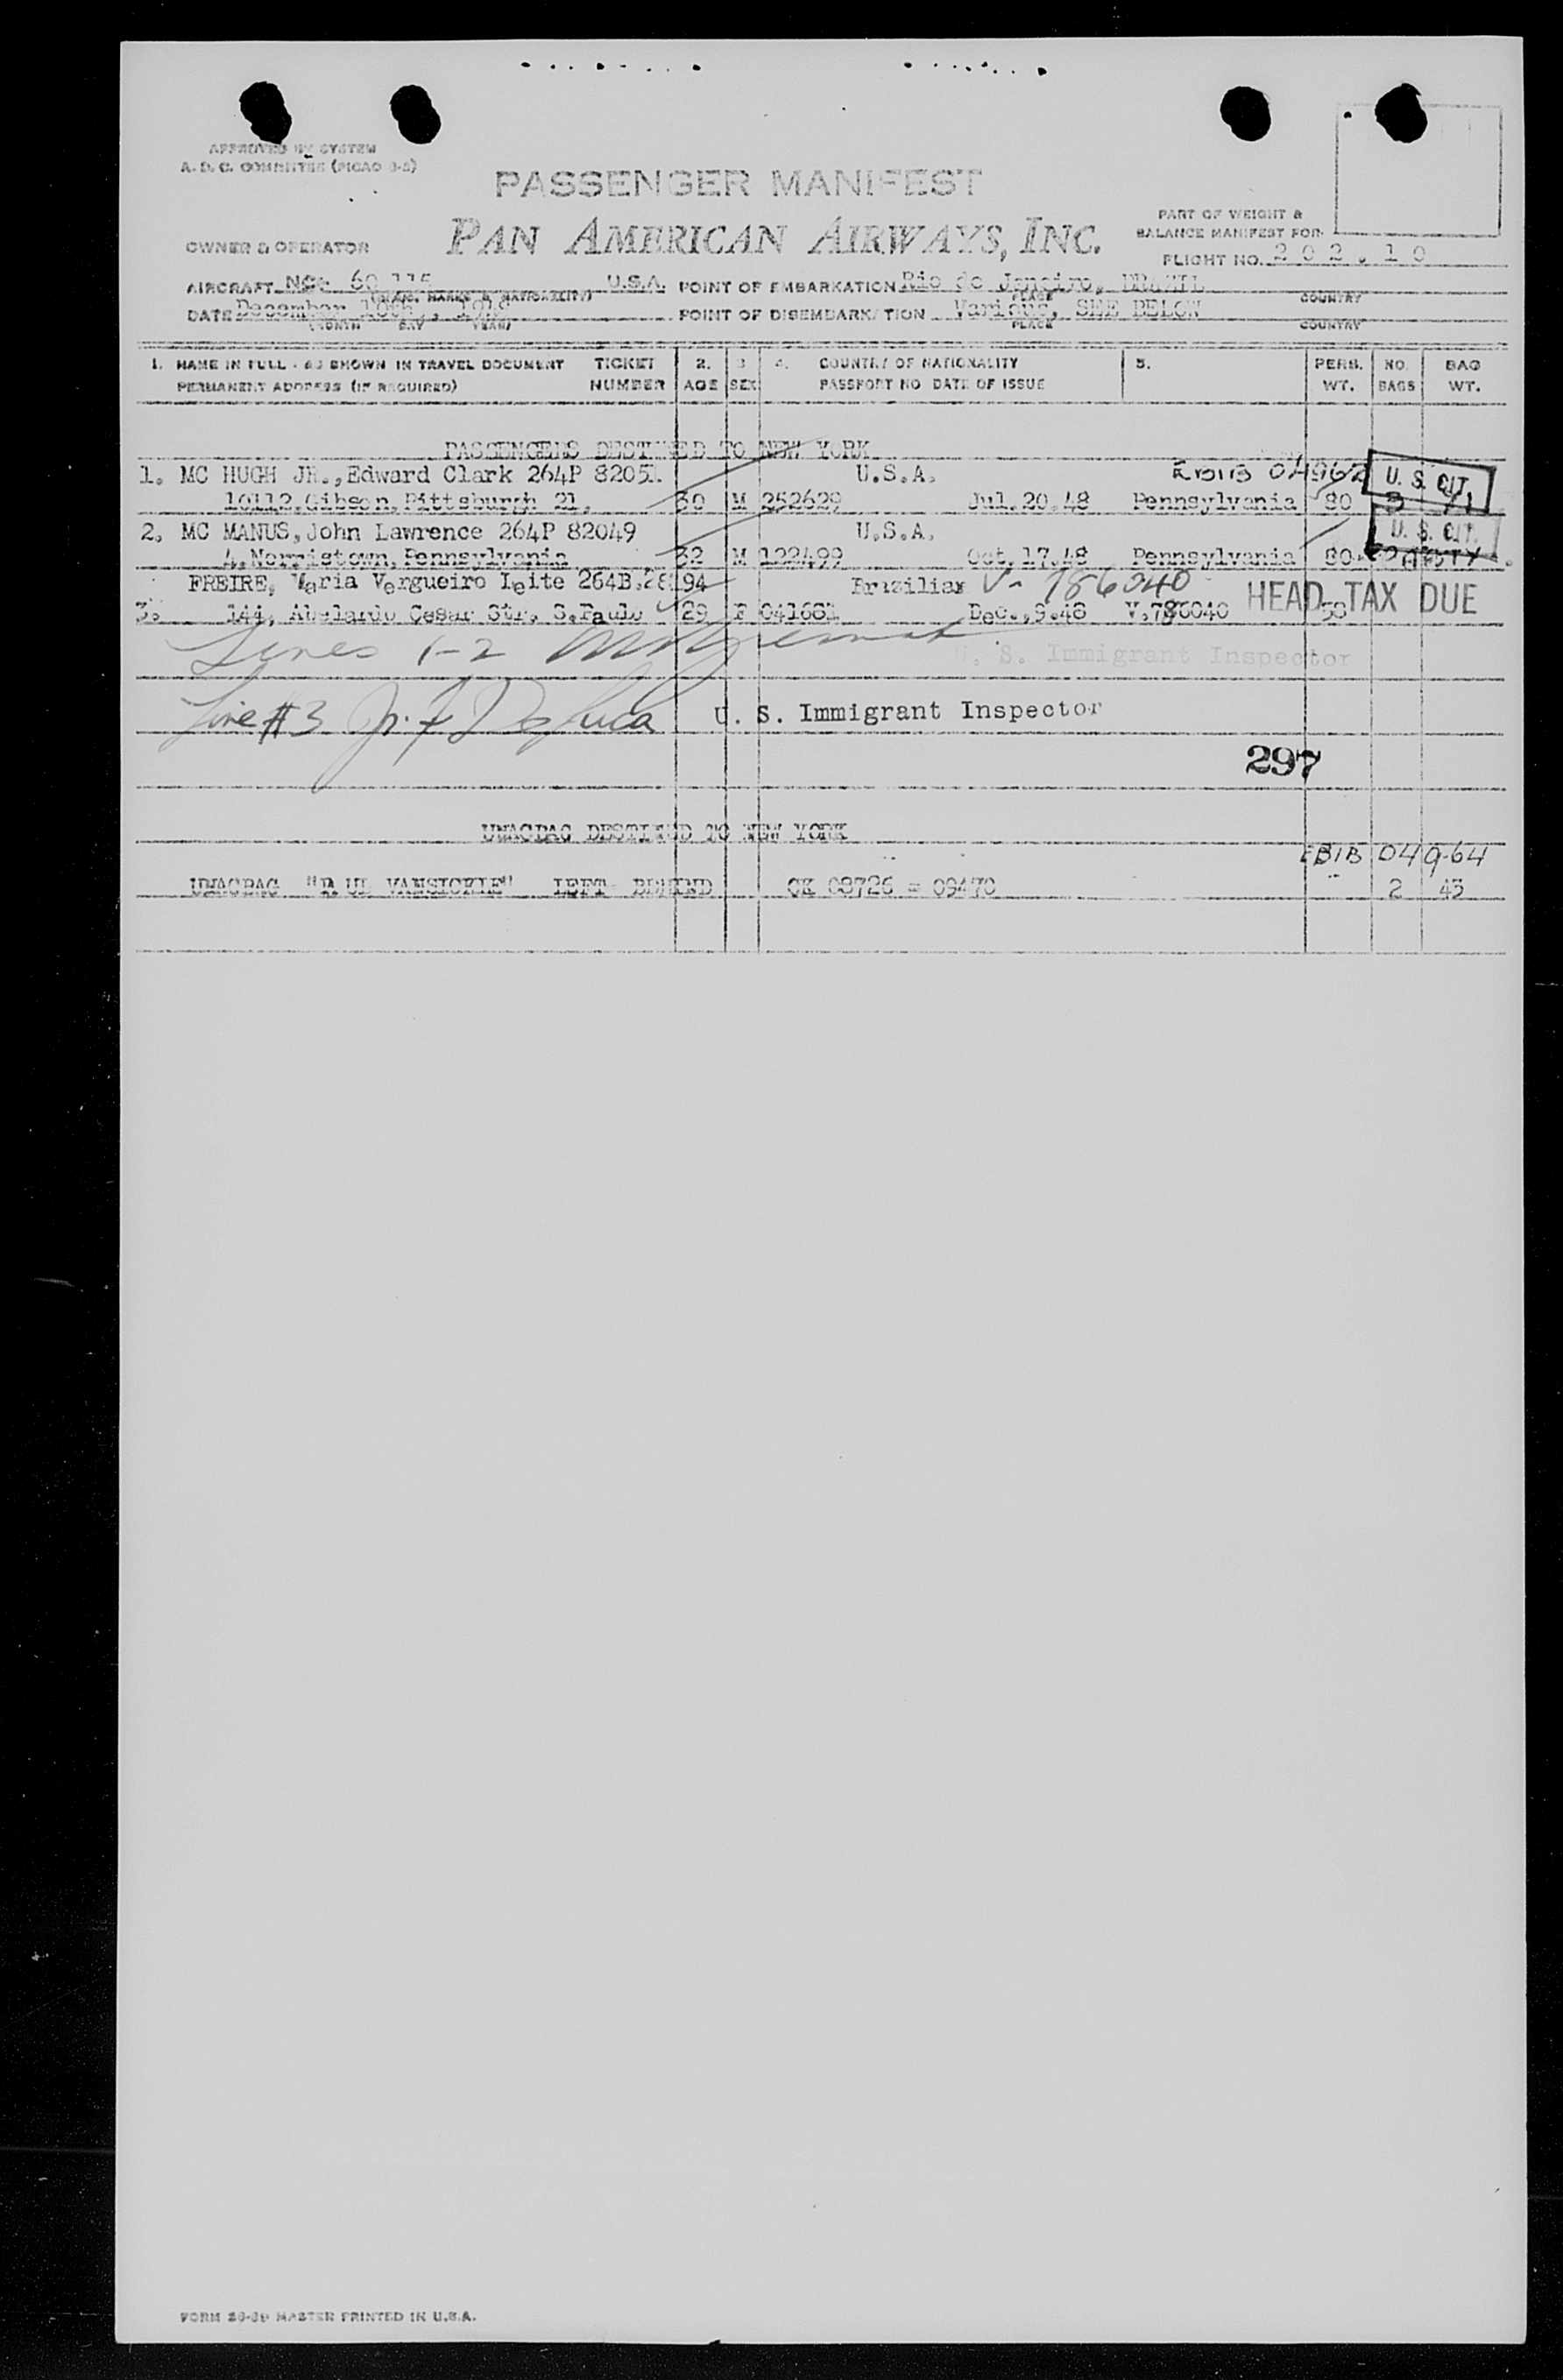 APPROVED BY SYSTEM
A. D. C. COMMITTEE (PICAO
PASSENGER MANIFEST
PAN AMERICAN AIRWAYS, INC.
PART OF WEIGHT &
BALANCE MANIFEST FOR
OWNER & OPERATOR
FLIGHT NO. 202.10
AIRCRAFT U.S.A. POINT OF EMBARKATION Rio de Janeiro, BRAZIL
PLACE COUNTRY
DATE December POINT OF DISEMBARKATION Various, SEE BELOW
(MONTH DAY YEAR) PLACE COUNTRY
1. NAME IN FULL - AS SHOWN IN TRAVEL DOCUMENT TICKET 2. 3 4. COUNTRY OF NATIONALITY 5. PERS. NO. BAG
PERMANENT ADDRESS (IF REQUIRED) NUMBER AGE SEX PASSPORT NO DATE OF ISSUE WT. BAGS WT.
PASSENGERS DESTINED TO NEW YORK
1. MC HUGH JR.,Edward Clark 264P 82051 U.S.A. EBIB 04962 U. S. CIT.
10112,Gibson,Pittsburgh 21, 30 M 252629 Jul.20.48 Pennsylvania 80
2. MC MANUS,John Lawrence 264P 82049 U.S.A. U. S. CIT.
4,Norristown,Pennsylvania 32 M 122499 Oct.17.48 Pennsylvania 80
FREIRE, Maria Vergueiro Leite 264B.28194 Brazilian V- 786040 HEAD TAX DUE
3. 144, Abelardo Cesar Str. S.Paulo 29 F 041681 Dec.,9.48 V.786040 58
Lines 1-2 U. S. Immigrant Inspector
Line #3 U. S. Immigrant Inspector
297
UNACBAG DESTINED TO NEW YORK
EBIB 04964
UNACBAG "PAUL VANSICKLE" LEFT BEHIND CK 08726 = 09470 2 43
FORM MASTER PRINTED IN U.S.A.